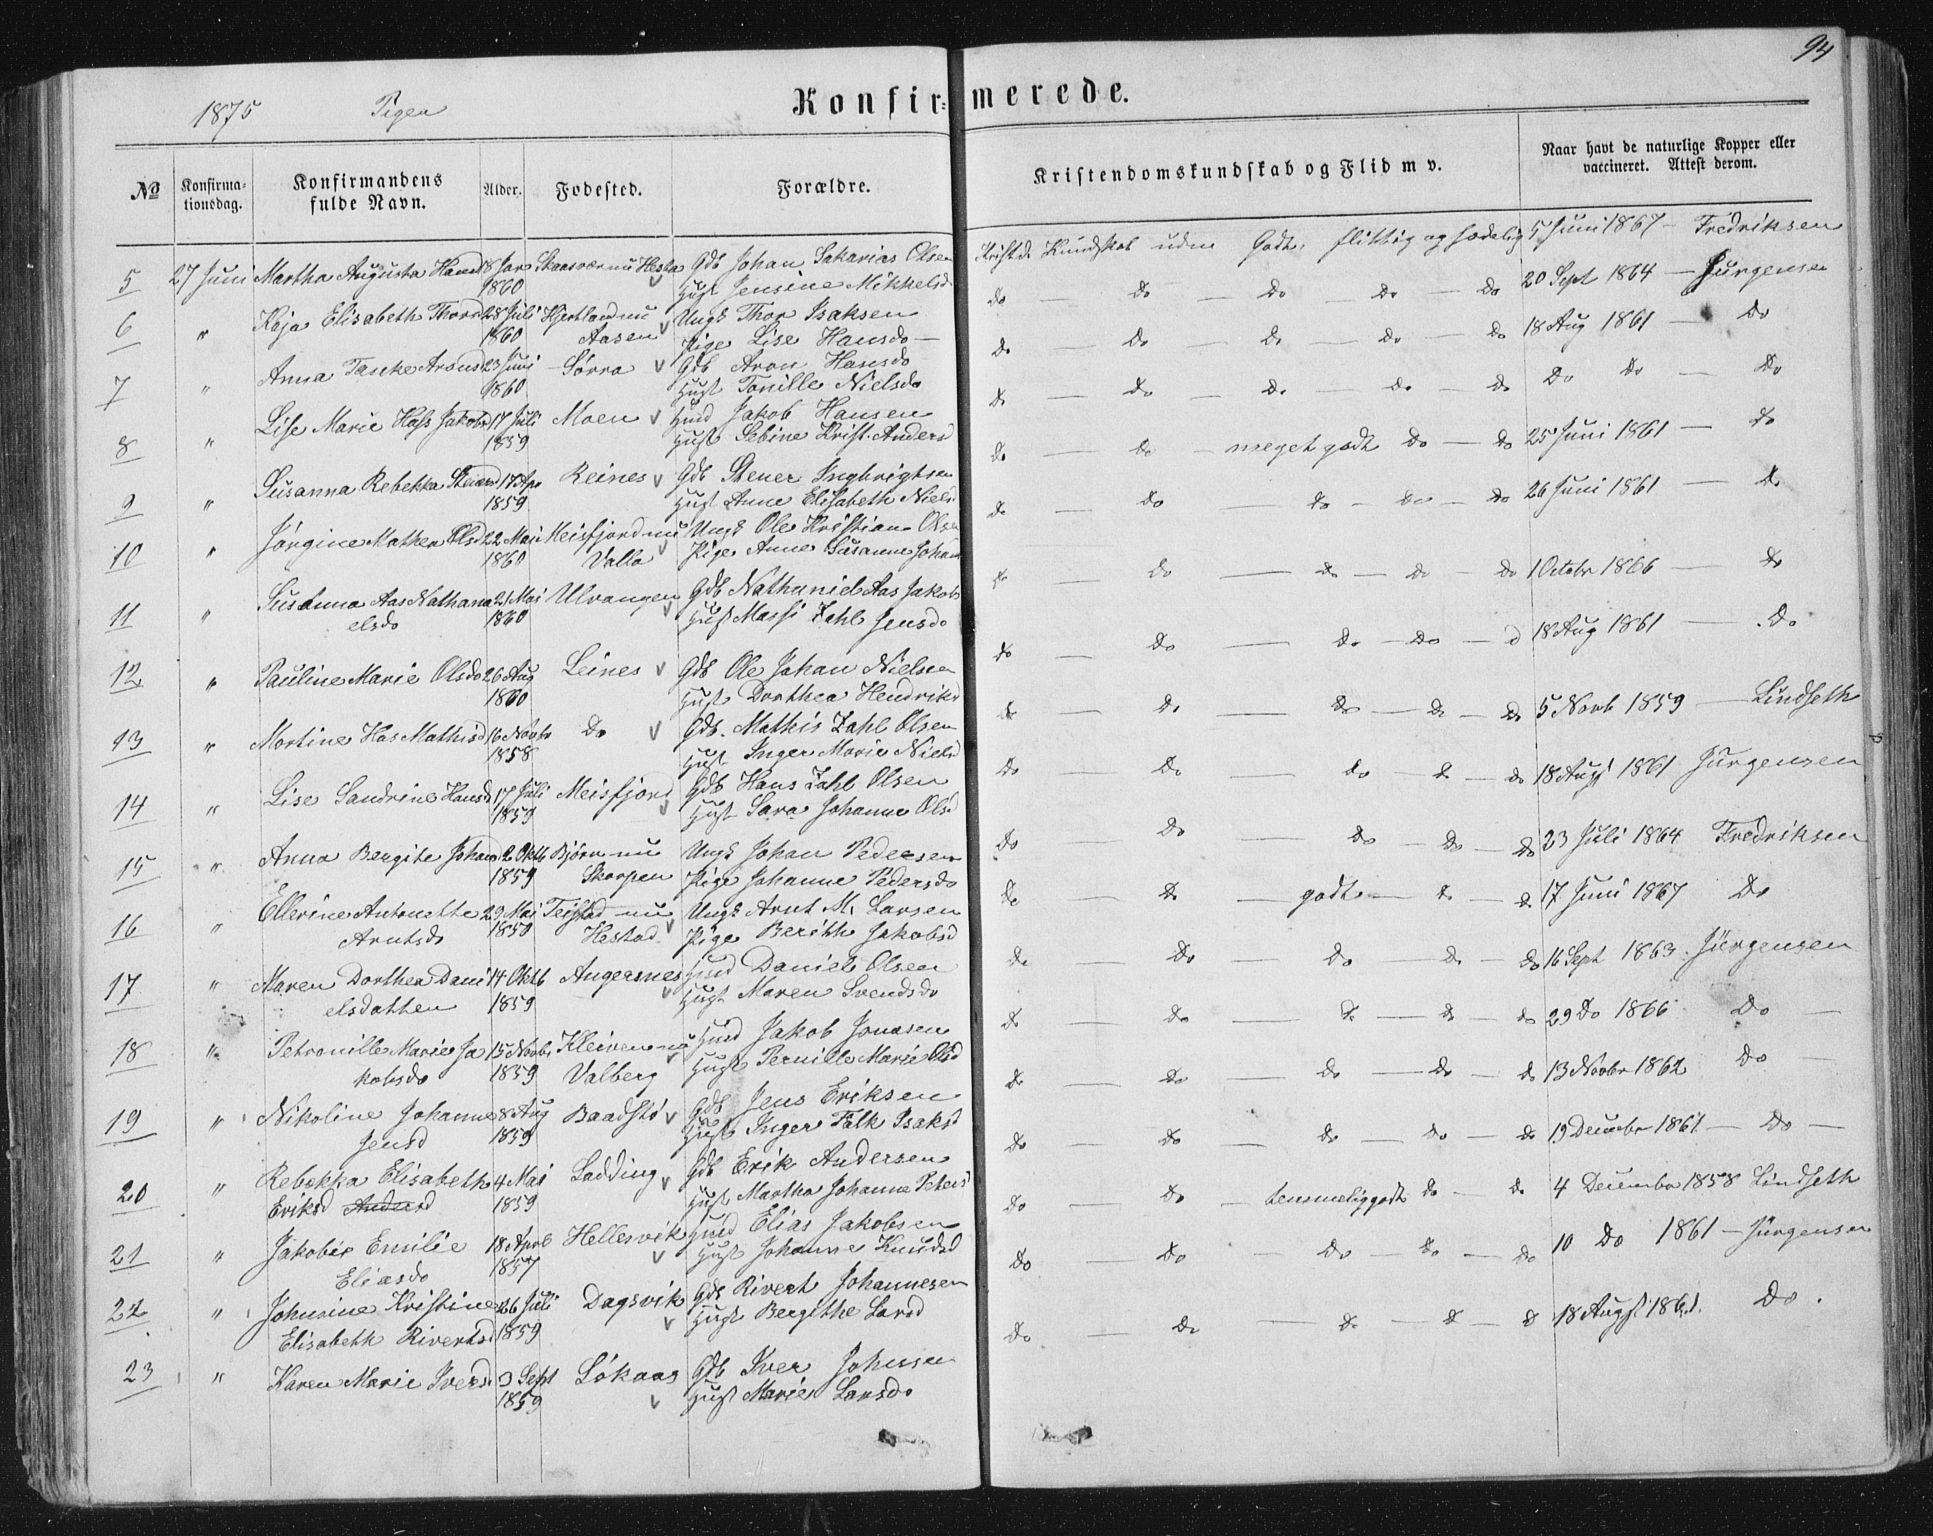 94
1875 Piger Konfir- merede.
No Konfirma- tionsdag. Konfirmandens fulde Navn. Alder. Fodested. Forældre. Kristendomskundskab og Flid m v. Naar havt de naturlige Kopper eller vaccineret. Attest derom.
5 27 Juni Martha Augusta 18 Jan Gdb Johan Sakarias Olsen Kristd. Kundskab uden Godt, flittig og sædelig 5 Juni 1867 - Fredriksen
1860 Hust Jensine Mikkelsd
6 " Kaja Elisabeth Thorsd 28 Juli Hjertland nu Ungk Thor Isaksen do — do — do — do — do 20 Sept 1864 — Jürgensen
1860 Aasen Pige Lise Hansdo
7 " Anna Tanke Aronsd 23 Juni Sørra Gdb Aron Hansdo do — do — do — do — do 18 Aug 1861 — Do
1860 Hust Tonille Nielsdo
8 " Lise Marie Hass Jakobs 17 Juli Moen Husmd Jakob Hansen do — do — do — do — do Do Do — Do
1859 Hust Sebine Krist. Andersd
9 " Susanna Rebekka Stenersd 17 Apr Reines Gdb Stener Ingbrigtsen do — do — meget godt do — do 25 Juni 1861 — do
1859 Hust Anne Elisabeth Nielsd
10 " Jørgine Mathea Olsd 22 Mai Meisfjord nu Ungk Ole Kristian Olsen do — do — do — do — do 26 Juni 1861 — do
1860 Valla Pige Anne Susanne Johans
11 " Susanna Aas Nathana 21 Mai Ulvangen Gdb Nathaniel Aas Jakobs do — do — do — do — do 1 Octobr 1866 — do
elsdo 1860 Hust Massi Zahl Jensdo
12 " Pauline Marie Olsdo 26 Aug Leines Gdb Ole Johan Nielsen do — do — do — do — do 18 Aug 1861 — Do
1860 Hust Dorthea Hendriksd
13 " Martine Has Mathisd 16 Novbr Do Gdb. Mathis Zahl Olsen do — do — do — do — do 5 Novb 1859 — Lindseth
1858 Hust Inger Marie Nielsd
14 " Lise Sandrine Hansd 17 Juli Meisfjord Gdb Hans Zahl Olsen do — do — do — do — do 18 Augs 1861 Jürgensen
1859 Hust Sara Johanne Olsd
15 " Anna Bergite Johans 2 Oktb Bjørn nu Ungk Johan Pedersen do — do — do — do — do 23 Juli 1864 Fredriksen
1859 Skorpen Pige Johanne Pedersdo
16 " Ellerine Antonette 29 Mai Teistad nu Ungk Arnt M. Larsen do — do — godt — do — do 17 Juni 1867 Do
Arntsdo 1859 Hestad Pige Berith Jakobsd
17 " Maren Dorthea Dani 14 Oktb Angersnes Husmd Daniel Olsen do — do — do — do — do 16 Sept 1863. Jürgensen
elsdatten 1859 Hust Maren Svendsdo
18 " Petronille Marie Ja 15 Novbr Kleiven nu Husmd Jakob Jonasen do — do — do — do — do 29 Do 1866 Do —
kobsdo 1859 Valberg Hust Pernille Marie Olsd
19 " Nikoline Johanne 8 Aug Baadstø Gdb Jens Eriksen do — do — do — do — do 13 Novbr 1862 Do —
Jensd 1859 Hust Inger Falk Isaksd
20 " Rebekka Elisabeth 4 Mai Sadding Gdb Erik Andersen do — do — do — do — do 19 Decembr 1861 — Do —
Eriksd Andersd 1859 Hust Martha Johanne Petersd
21 " Jakobie Emilie 18 April Hellesvik Husmd Elias Jakobsen do — do — temmelig godt do — do 4 Decembr 1858 Lindseth
Eliasdo 1857 Hust Johanne Knudsd
22 " Johnsine Kristine 26 Juli Dagsvik Gdb Rivert Johannesen do — do — do — do — do 10 Do 1861 — Jürgensen
Elisabeth Rivertsd 1859 Hust Bergithe Larsd
23 " Karen Marie Iversd 3 Sept Løkaas Gdb Iver Johnsen do — do — do — do — do 18 Augst 1861. Do.
1859 Hust Marie Larsdo